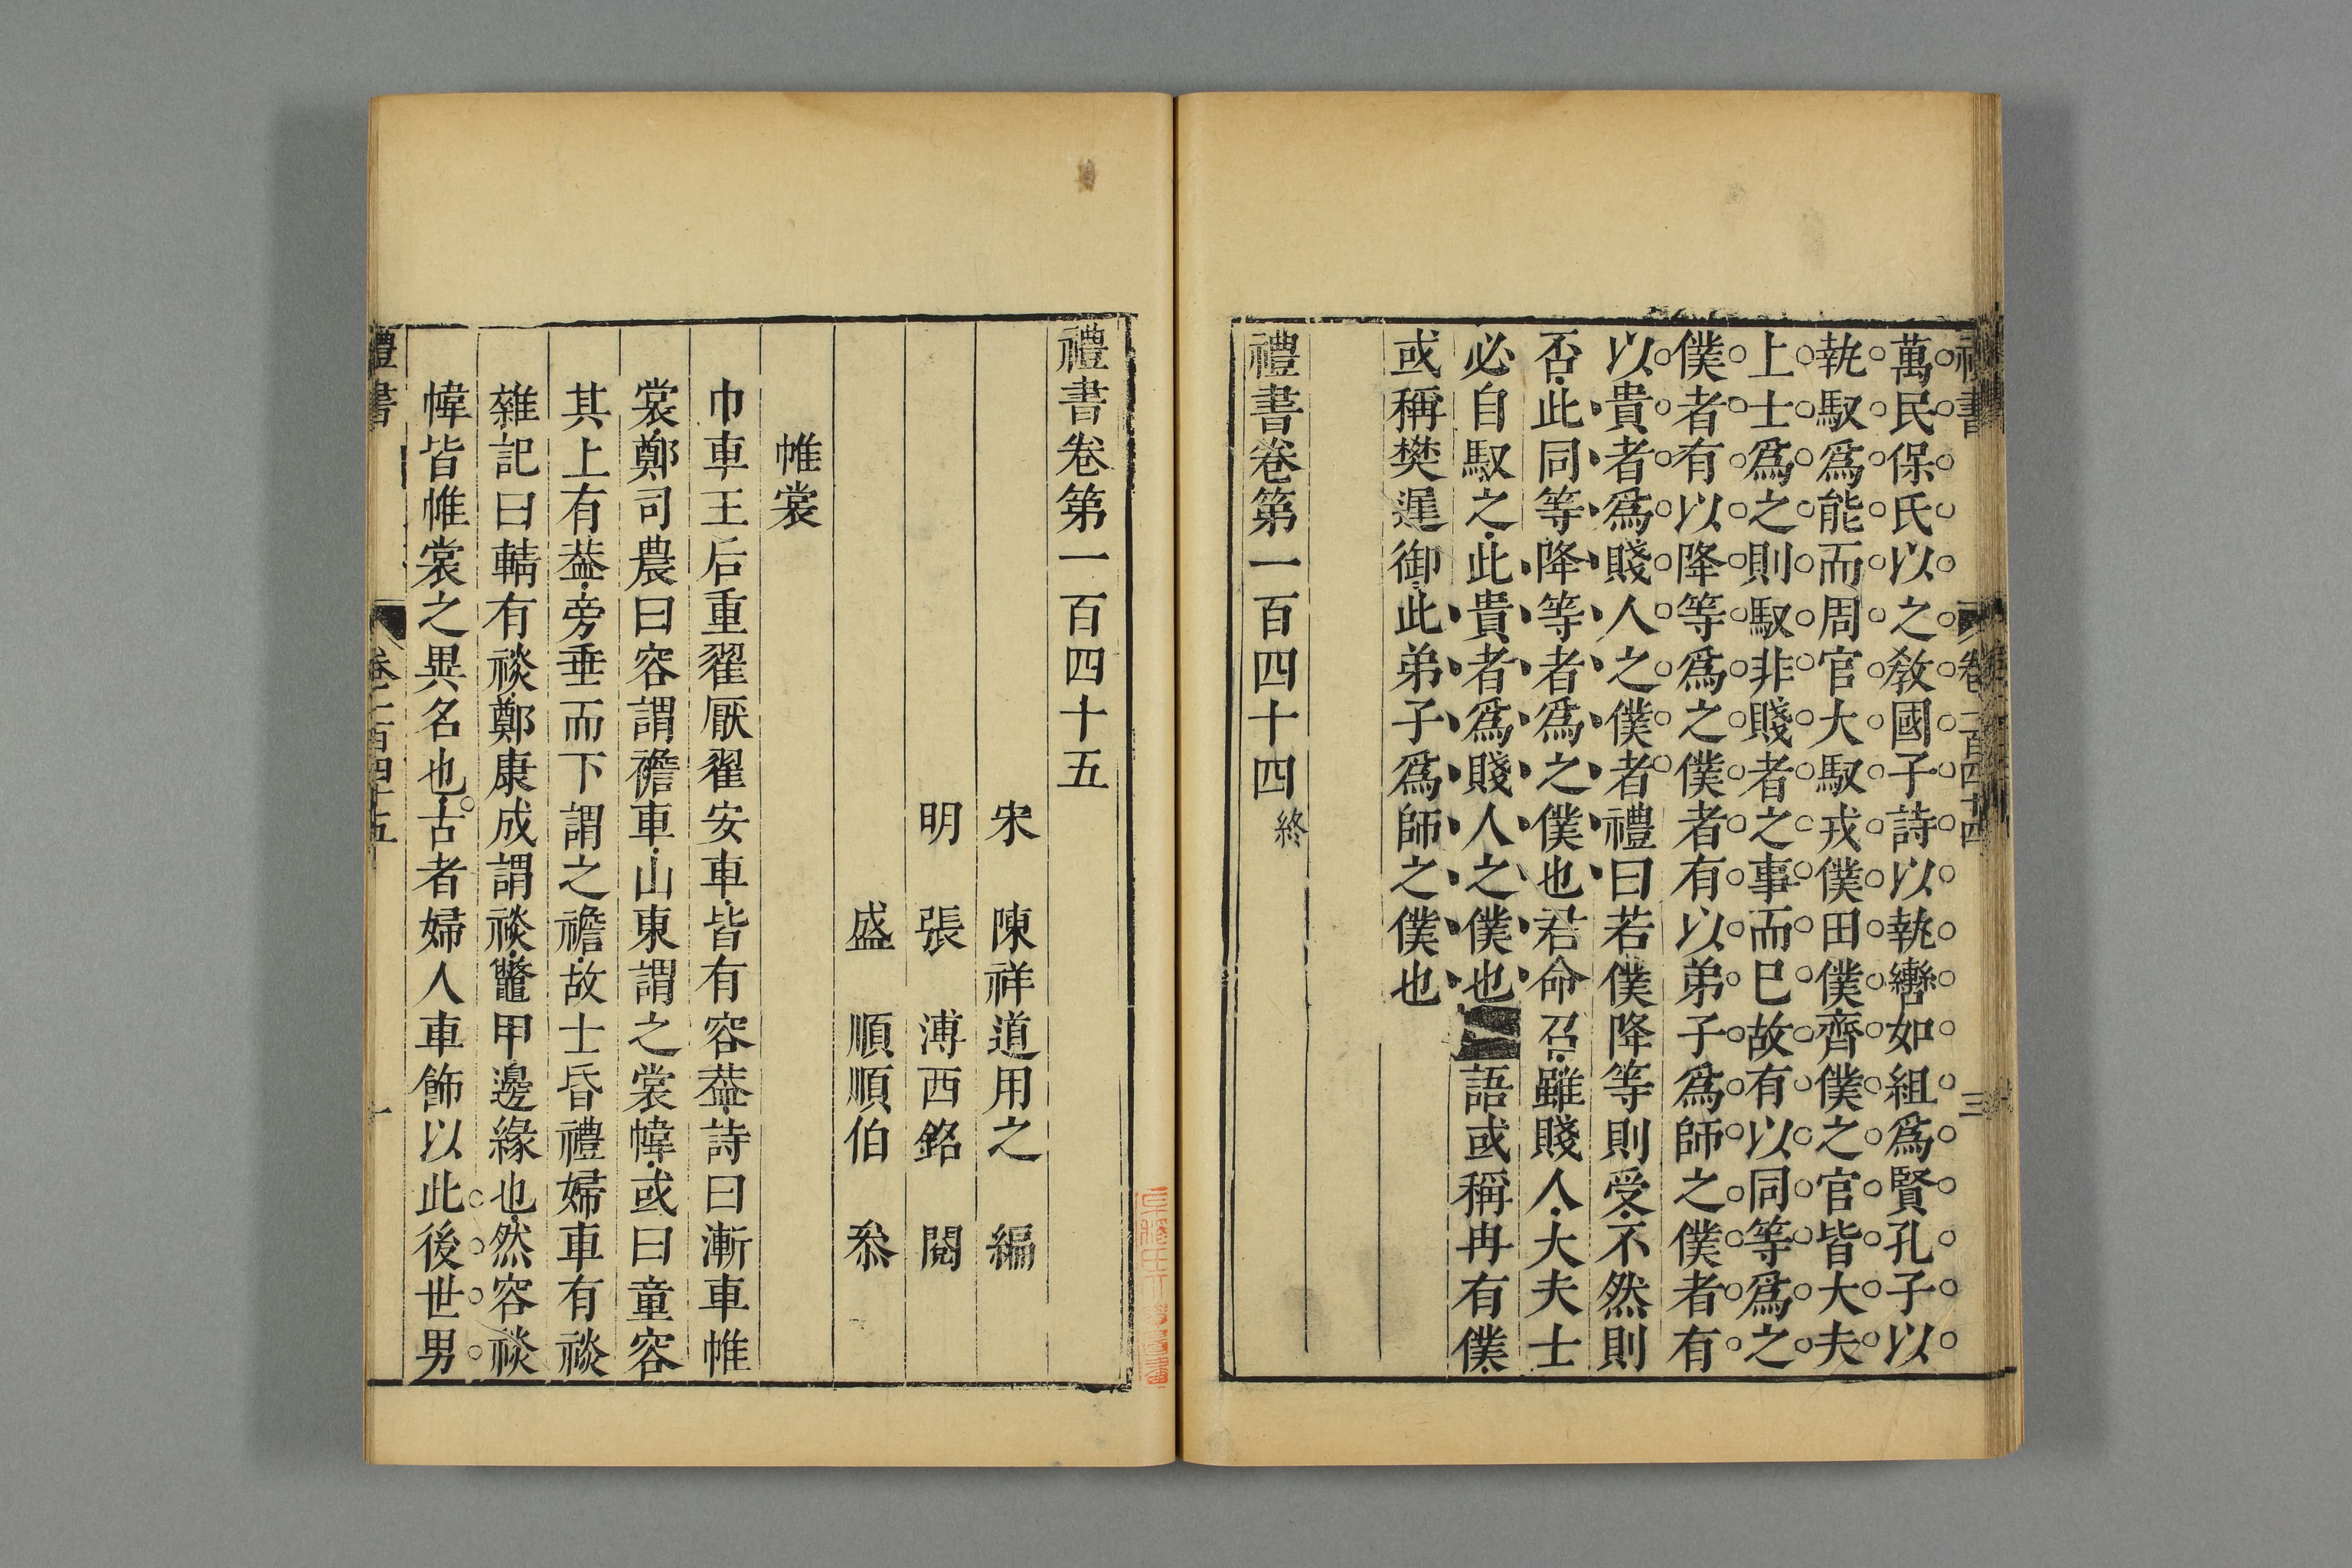 萬民保氏以之敎國子詩以執轡如組爲賢孔子以
執馭爲能而周官大馭戎僕田僕齊僕之官皆大夫
上士爲之則馭非賤者之事而已故有以同等爲之
僕者有以降等爲之僕者有以弟子爲師之僕者有
以貴者爲賤人之僕者禮曰若僕降等則受不然則
否此同等降等者爲之僕也君命召雖賤人大夫士
必自馭之此貴者爲賤人之僕也語或稱冉有僕
或稱樊遲御此弟子爲師之僕也
禮書卷第一百四十四終
禮書卷第一百四十五
宋 陳祥道用之 編
明 張 溥西銘 閱
盛 順順伯 叅
帷裳
巾車王后重翟厭翟安車皆有容葢詩曰漸車帷
裳鄭司農曰容謂襜車山東謂之裳幃或曰童容
其上有葢旁垂而下謂之襜故士昏禮婦車有裧
雜記曰輤有裧鄭康成謂裧鼈甲邊緣也然容裧
幃皆帷裳之異名也古者婦人車飾以此後世男
禮書 卷一百四十五 一